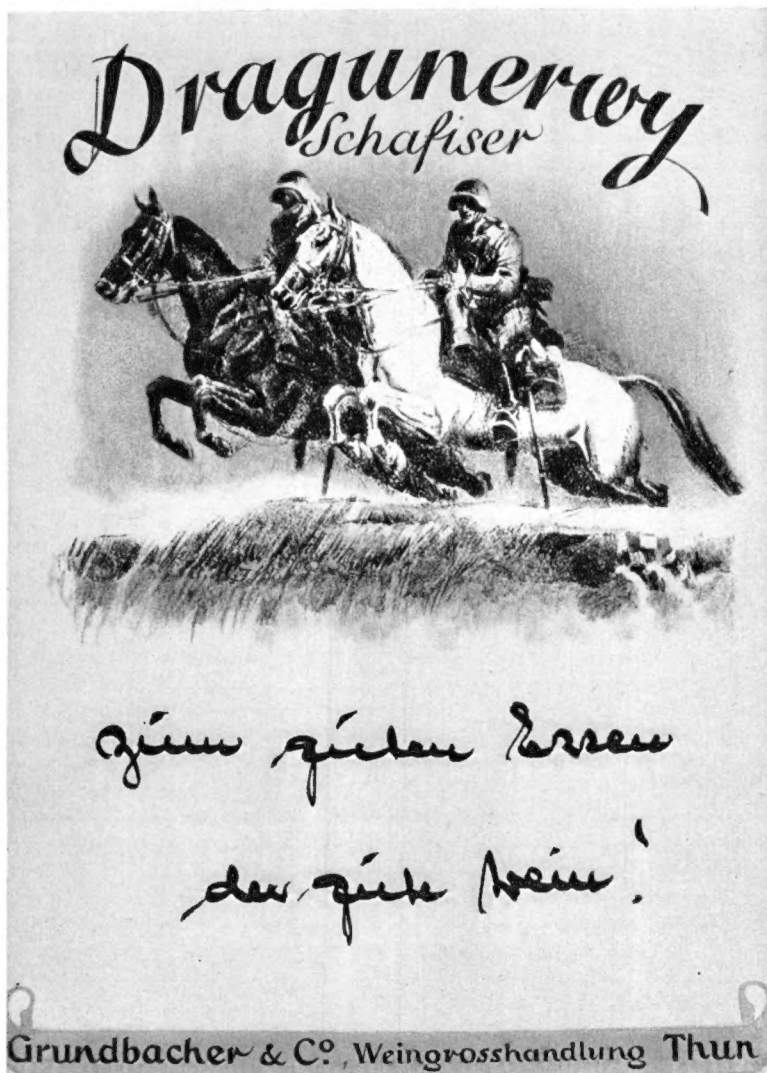 Dragunerwy
Schafiser
zum guten Essen
der gute Wein!
Grundbacher & Co., Weingrosshandlung Thun